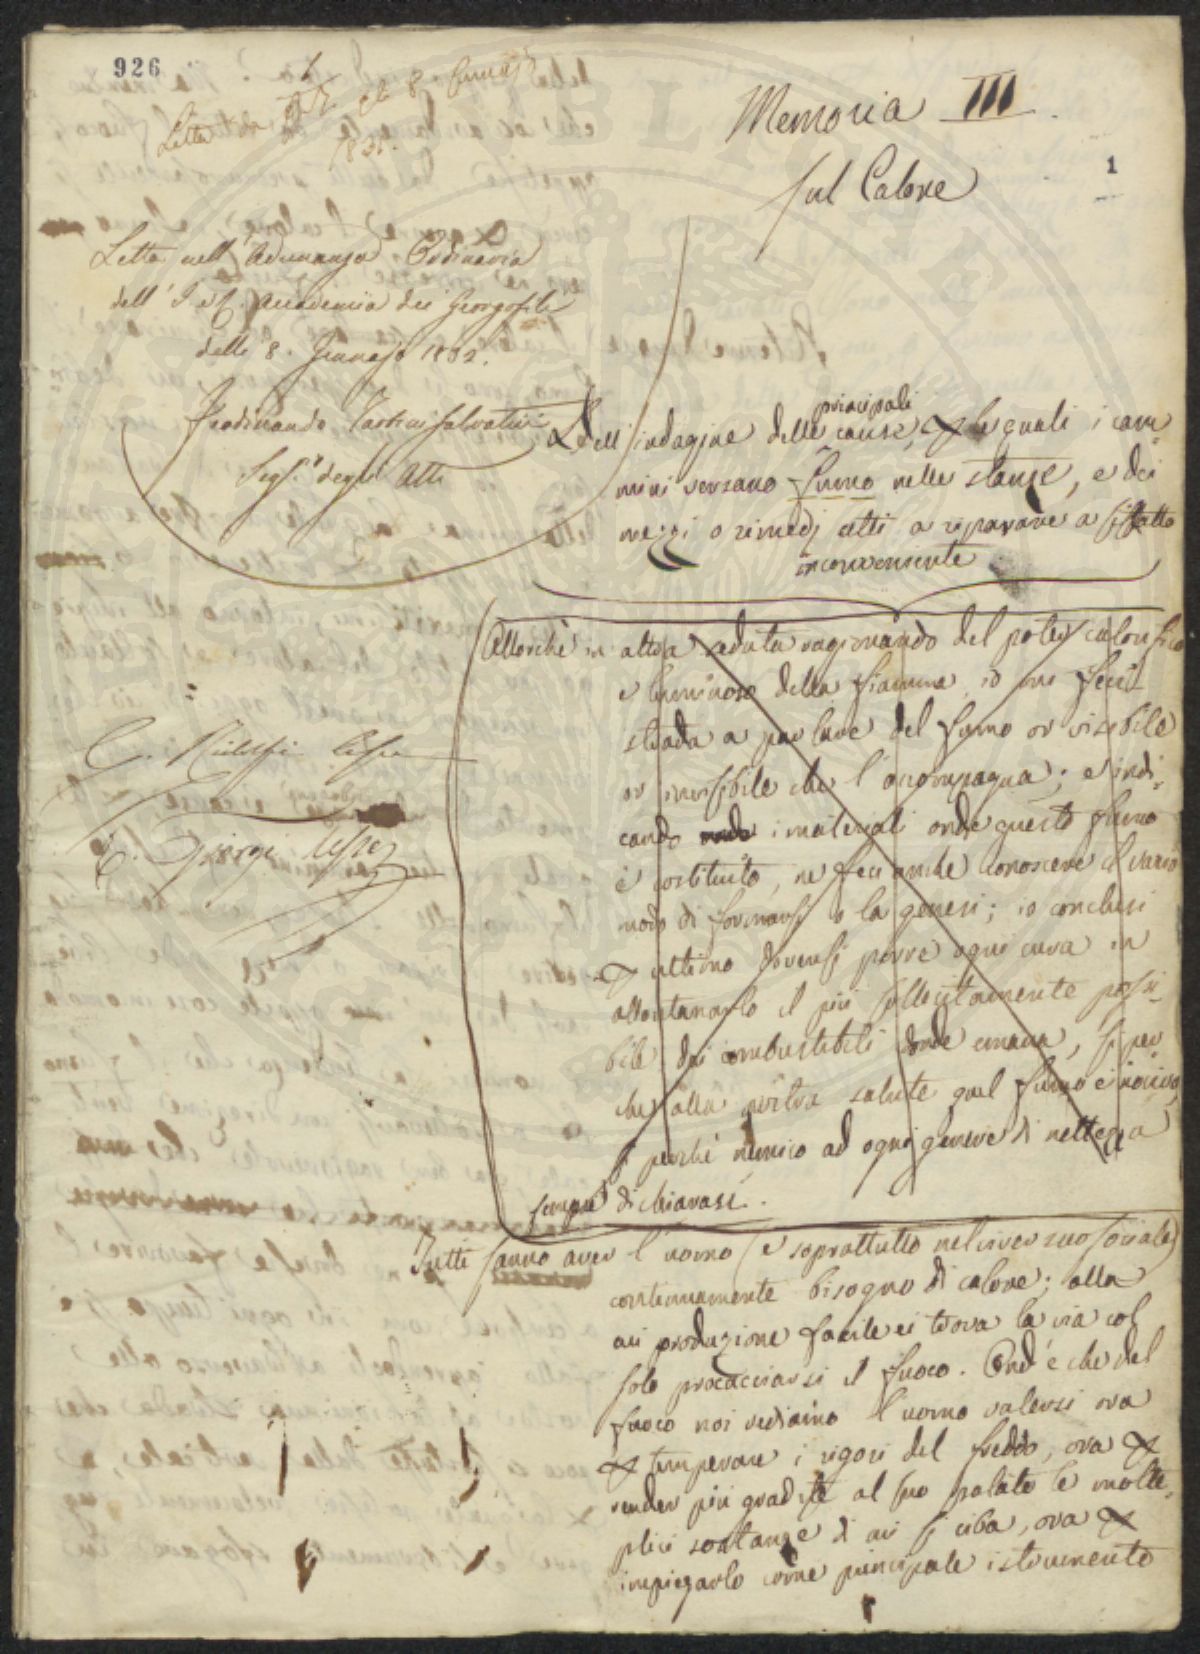 926
Letta da
li 8. Gennajo
1832.
Memoria III
1
sul Calore
Letta nell'Adunanza Ordinaria
dell' I. e R. Accademia dei Georgofili
delli 8. Gennajo 1832.
Ferdinando Tartini Salvatici
Seg.º degli Atti
Dell'indagine delle principali cause, p le quali i cam-
mini versano fumo nelle stanze, e dei
mezzi o rimedj atti a riparare a siffatto
inconveniente
C. Ridolfi
E. Giorgi
Allorchè in altra seduta ragionando del poter calorifico
e luminoso della fiamma, io mi feci
strada a parlare del fumo or visibile
or invisibile che l'accompagna; e indi-
cando i materiali onde questo fumo
è costituito, ne feci anche conoscere il vario
modo di formarsi o la genesi; io conclusi
p ultimo doversi porre ogni cura in
allontanarlo il più sollecitamente possi-
bile dai combustibili donde emana, si per
che alla nostra salute quel fumo è nocivo,
si perchè nemico ad ogni genere di nettezza
sempre dichiarasi.
Tutti sanno aver l'uomo (e soprattutto nel viver suo sociale)
continuamente bisogno di calore; alla
cui produzione facile ei trova la via col
solo procacciarsi il fuoco. Ond'è che del
fuoco noi vediamo l'uomo valersi ora
p temperare i rigori del freddo, ora p
render più gradite al suo palato le molte-
plici sostanze di cui si ciba, ora p
impiegarlo come principale istrumento